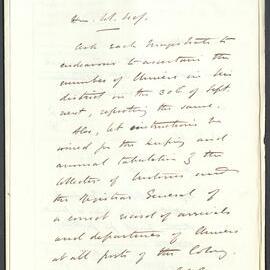 Hon. Col. Secy.
Ask each Magistrate to
endeavour to ascertain the
number of Chinese in his
district on the 30th of Sept.
next, reporting the same.
Also, let instructions be
issued for the keeping and
annual tabulation by the
Collector of Customs and
the Registrar General of
a correct record of arrivals
and departures of Chinese
at all ports of the Colony.